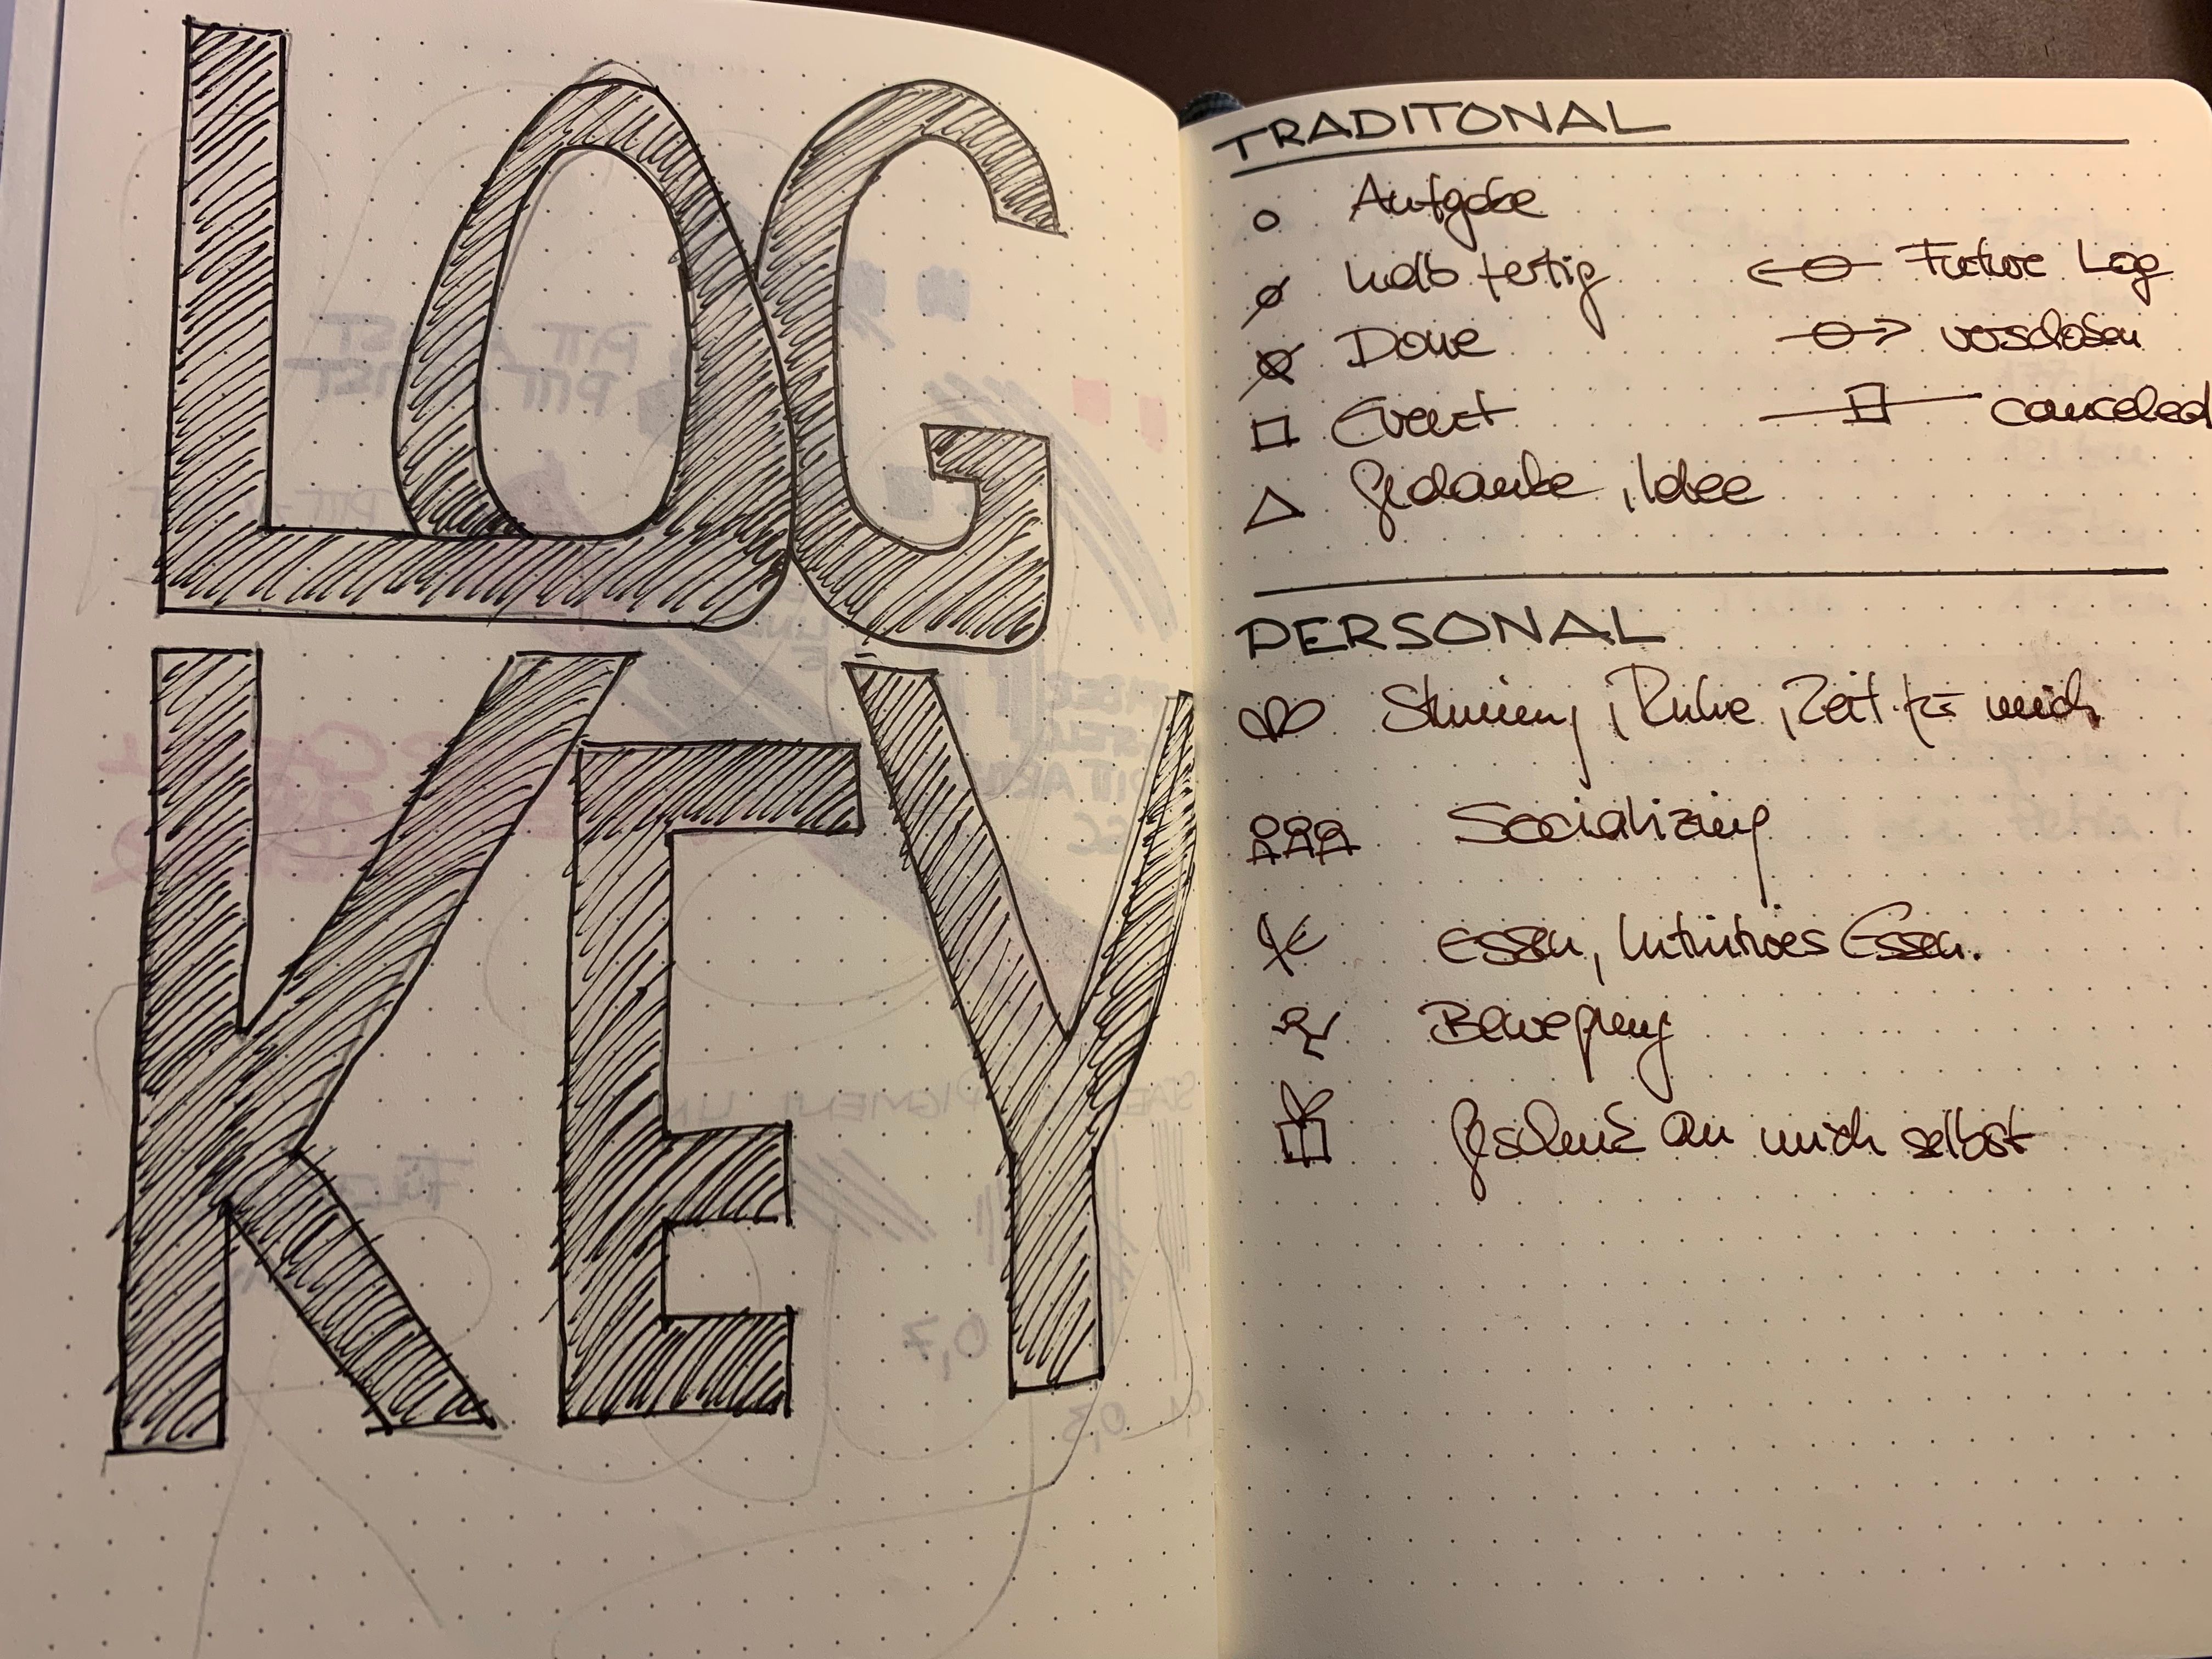 LOG
KEY
TRADITONAL
Aufgabe
halb fertig
Future Log
Done
verschoben
Event
canceled
Gedanke, Idee
PERSONAL
Stimmung, Ruhe, Zeit für mich
Socializing
Essen, Intuitives Essen.
Bewegung
Geschenk an mich selbst